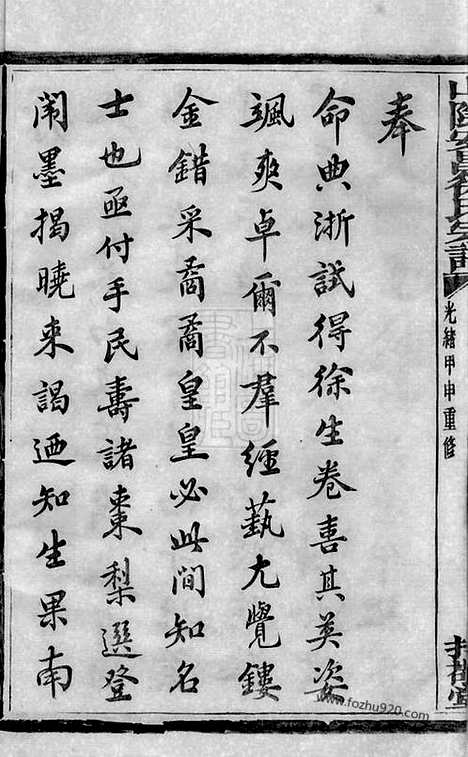 奉
命典浙試得徐生卷喜其英姿
颯爽卓爾不羣經藝尤覺鏤
金錯采矞矞皇皇必此間知名
士也亟付手民壽諸棗梨選登
闈墨揭曉来謁迺知生果南
山陰安昌徐氏宗譜
光緒甲申重修
www.fozhu920.com